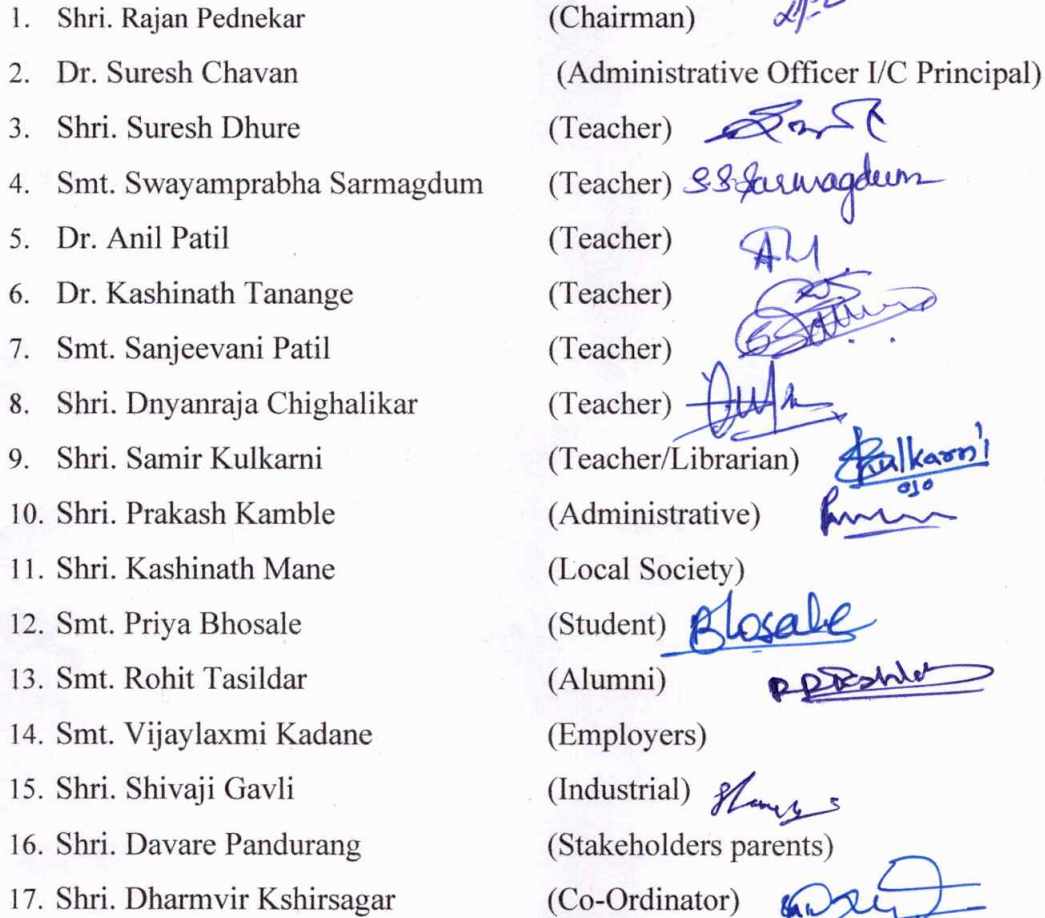 1. Shri. Rajan Pednekar (Chairman)
2. Dr. Suresh Chavan (Administrative Officer I/C Principal)
3. Shri. Suresh Dhure (Teacher)
4. Smt. Swayamprabha Sarmagdum (Teacher) S.S.Sarmagdum
5. Dr. Anil Patil (Teacher)
6. Dr. Kashinath Tanange (Teacher)
7. Smt. Sanjeevani Patil (Teacher)
8. Shri. Dnyanraja Chighalikar (Teacher)
9. Shri. Samir Kulkarni (Teacher/Librarian) Kulkarni
10. Shri. Prakash Kamble (Administrative)
11. Shri. Kashinath Mane (Local Society)
12. Smt. Priya Bhosale (Student) Bhosale
13. Smt. Rohit Tasildar (Alumni)
14. Smt. Vijaylaxmi Kadane (Employers)
15. Shri. Shivaji Gavli (Industrial)
16. Shri. Davare Pandurang (Stakeholders parents)
17. Shri. Dharmvir Kshirsagar (Co-Ordinator)